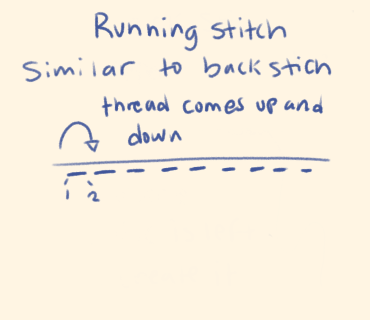 Running stitch
Similar to back stich
thread comes up and
down
1 2